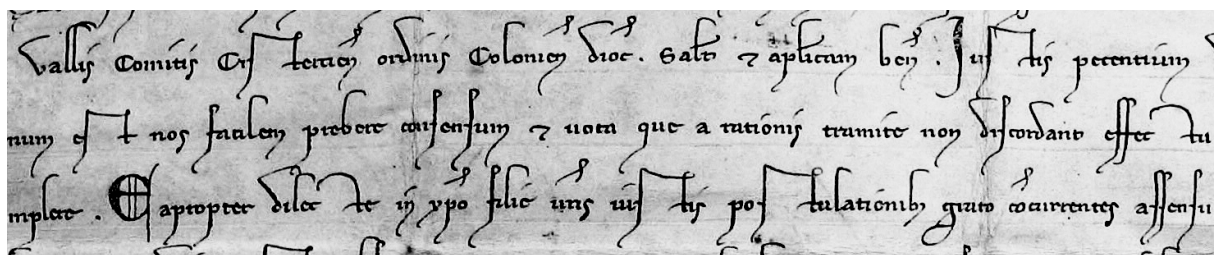 vallis Comitis Cistercien ordinis Colonien dioc . Salt ⁊ aplicam ben . Iustis petentium
num est nos facilem prebere consensum ⁊ vota que a rationis tramite non discordant effectu
mplere . Eapropter dilecte in xpo filie vris iustis postulationib grato cocurrentes assensu